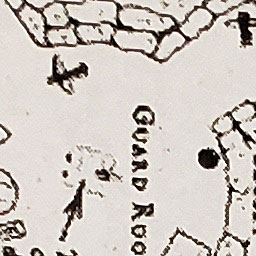 GUARD ROO